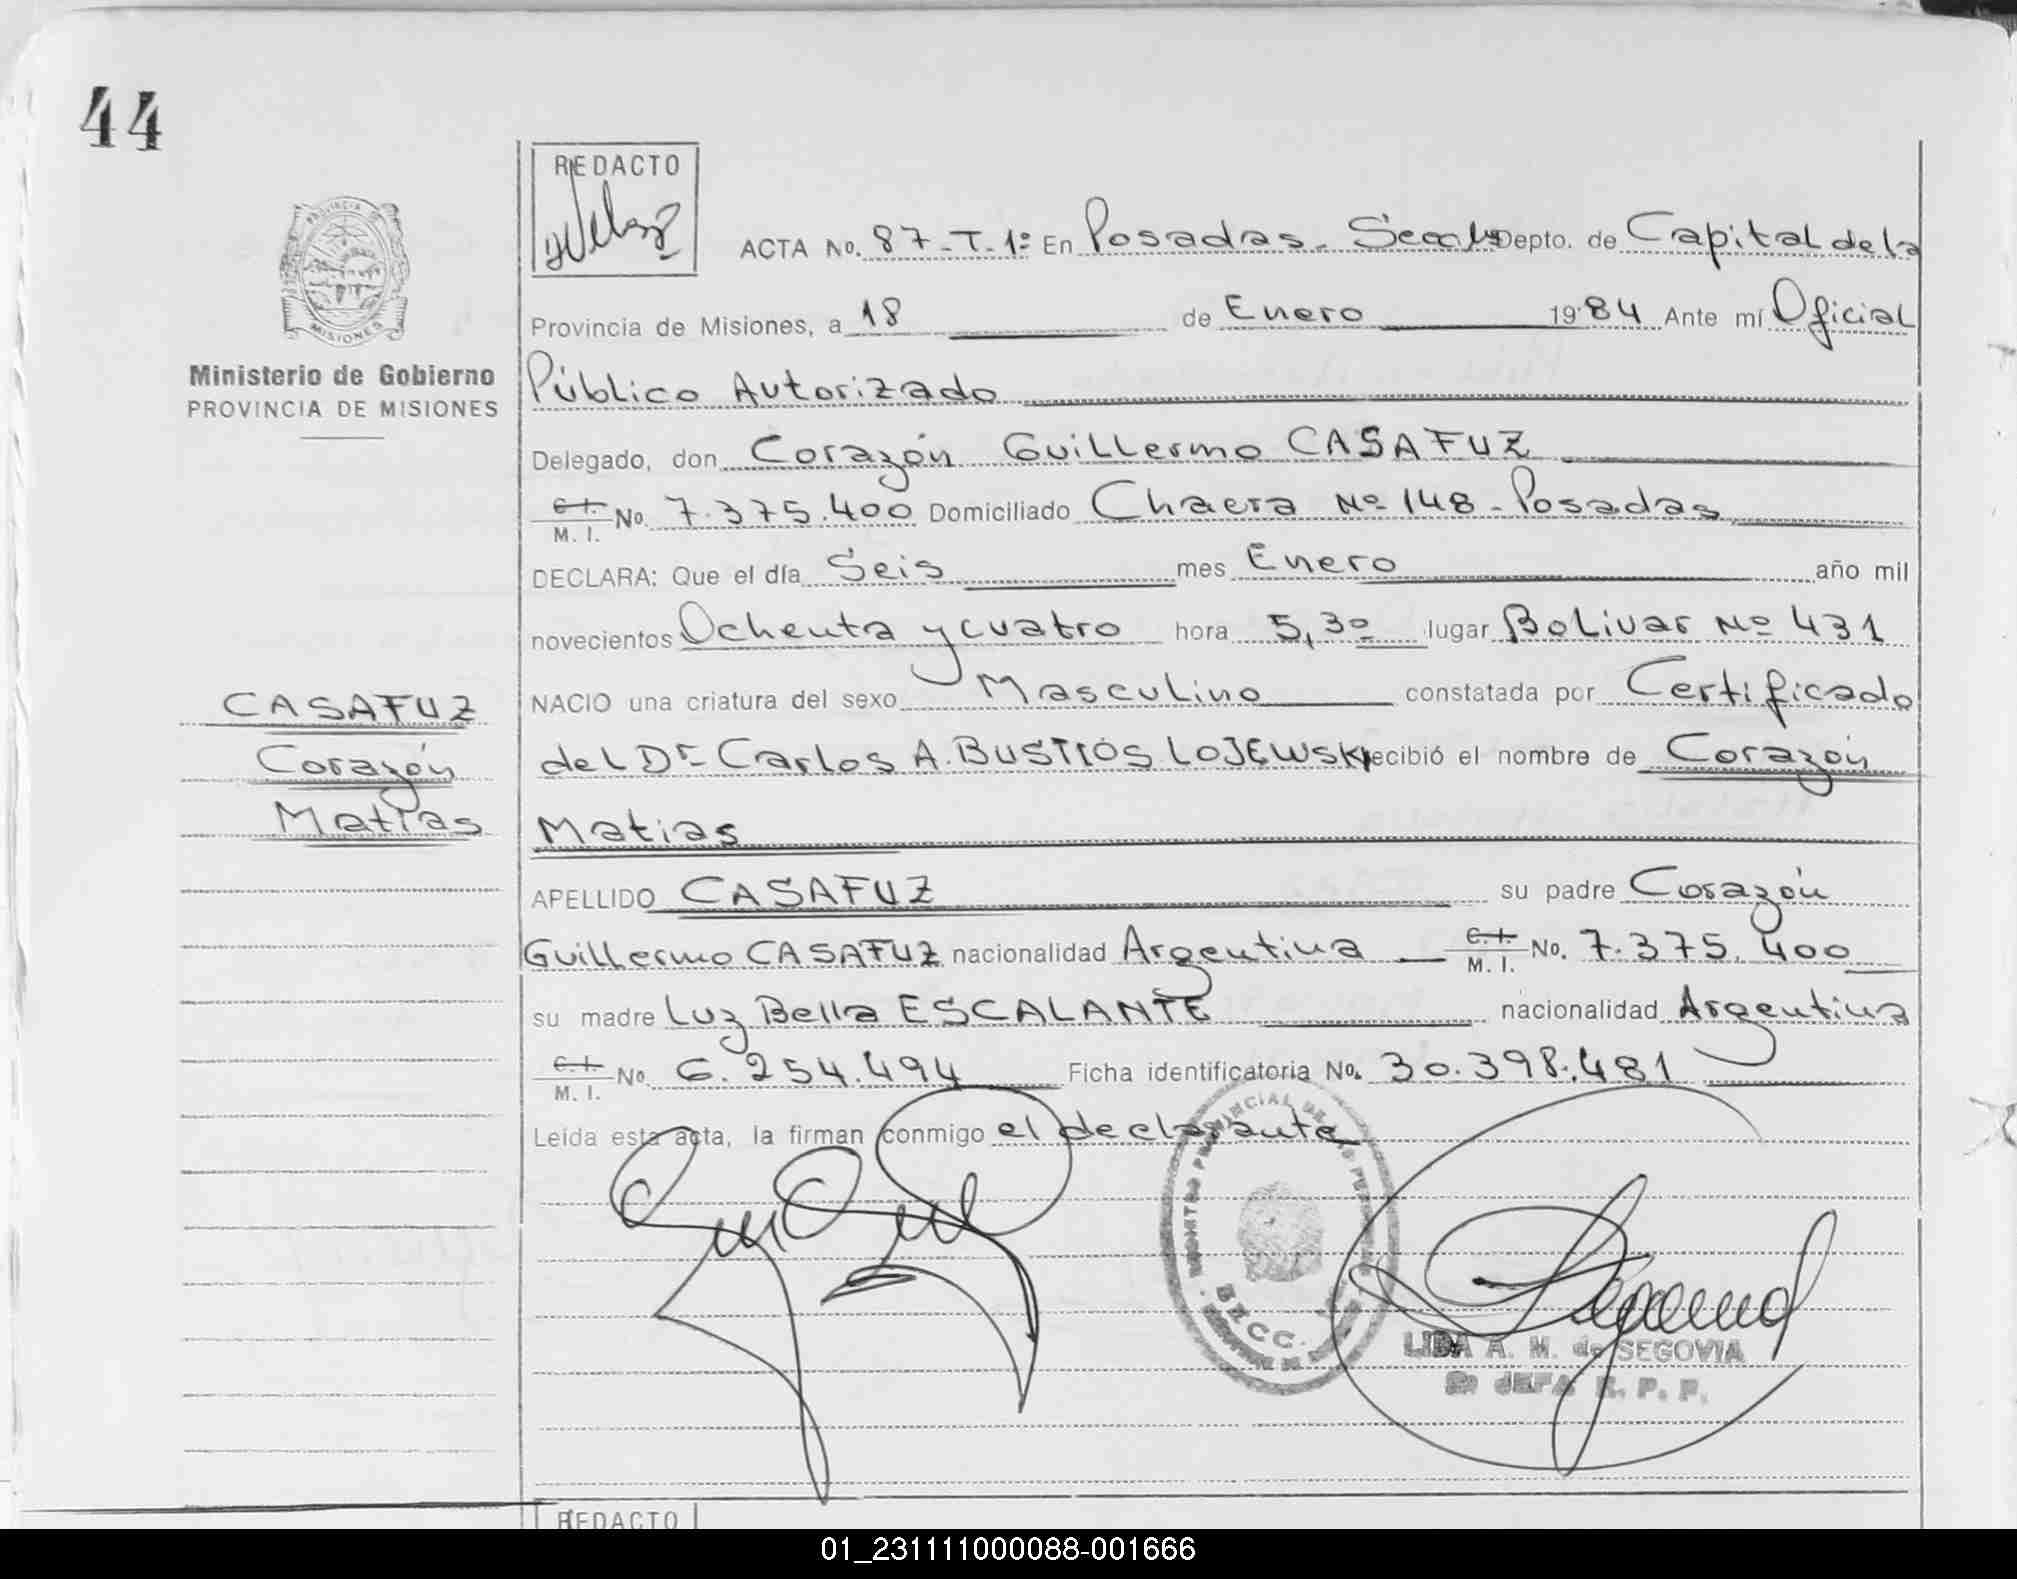 44
REDACTO
PROVINCIA DE
MISIONES
Ministerio de Gobierno
PROVINCIA DE MISIONES
ACTA No. 87-T.1º En Posadas. Depto. de Capital de la
Provincia de Misiones, a 18 de Enero 1984 Ante mí Oficial
Público Autorizado
Delegado, don Corazón Guillermo CASAFUZ
C.I.
M. I. No. 7.375.400 Domiciliado Chacra Nº 148 - Posadas
DECLARA: Que el día Seis mes Enero año mil
novecientos Ochenta y cuatro hora 5,30 lugar Bolivar Nº 431
NACIO una criatura del sexo Masculino constatada por Certificado
del Dr Carlos A. BUSTTOS LOJEWSKI recibió el nombre de Corazón
Matias
CASAFUZ
Corazón
Matias
APELLIDO CASAFUZ su padre Corazón
Guillermo CASAFUZ nacionalidad Argentina C.I.
M. I. No. 7.375.400
su madre Luz Bella ESCALANTE nacionalidad Argentina
C.I.
M. I. No. 6.254.494 Ficha identificatoria No. 30.398.481
Leída esta acta, la firman conmigo el declarante
LIDA A. M. de SEGOVIA
JEFA R. P. P.
REDACTO
01_231111000088-001666